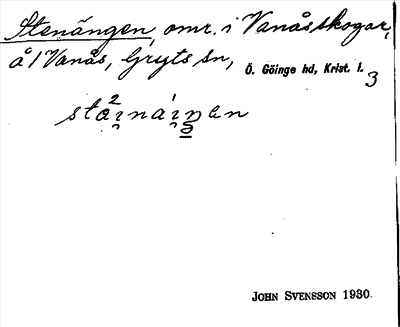 Stenängen, omr. i Vanåsskogar,
å / Vanås, Gryts sn, Ö. Göinge hd, Krist. l.
3
JOHN SVENSSON 1930.